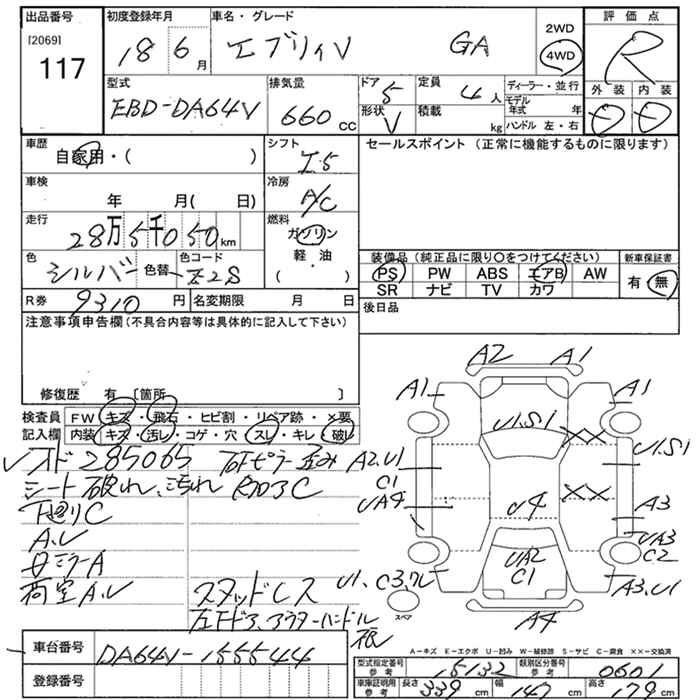 出品番号 初度登録年月 車名・グレード 2WD 評価点
[2069] 18 6 月 エブリィV GA 4WD R
117 外装 内装
型式 排気量 ドア 5 定員 4人 ディーラー・並行
EBD-DA64V 660 cc 形状 V 積載 kg モデル年式 年
ハンドル 左・右
車歴 シフト セールスポイント (正常に機能するものに限ります)
自家用・( ) I5
車検 冷房
年 月( 日) A/C
走行 燃料
28万5千050km ガソリン
色 色コード 軽・油
シルバー 色替 Z2S ( )
装備品(純正品に限り○をつけてください) 新車保証書
PS PW ABS エアB AW 有・無
SR ナビ TV カワ
R券 9310円 名変期限 月 日 後日品
注意事項申告欄(不具合内容等は具体的に記入して下さい)
修復歴 有 〔箇所 〕
検査員 FW キズ・飛石・ヒビ割・リペア跡・×要
記入欄 内装 キズ・汚レ・コゲ・穴 スレ・キレ・破レ
285065
シート破れ、汚れ
下廻りC
A.U
荷室A.U
スタッドレス
左Fドアアウターハンドル
A2 A1
A1 A1
U1.S1
XX
A2.U1 U1.S1
C1
UA4 XX A3
U4
UA3
UA2 C2
C1
A3.U1
スペア
A4
A-キズ E-エクボ U-凹み W-補修跡 S-サビ C-腐食 ××-交換済
車台番号 DA64V-155544
登録番号
型式指定番号 参考 15132 類別区分番号 参考 0601
車庫証明用 参考 長さ 339 cm 幅 147 cm 高さ 179 cm